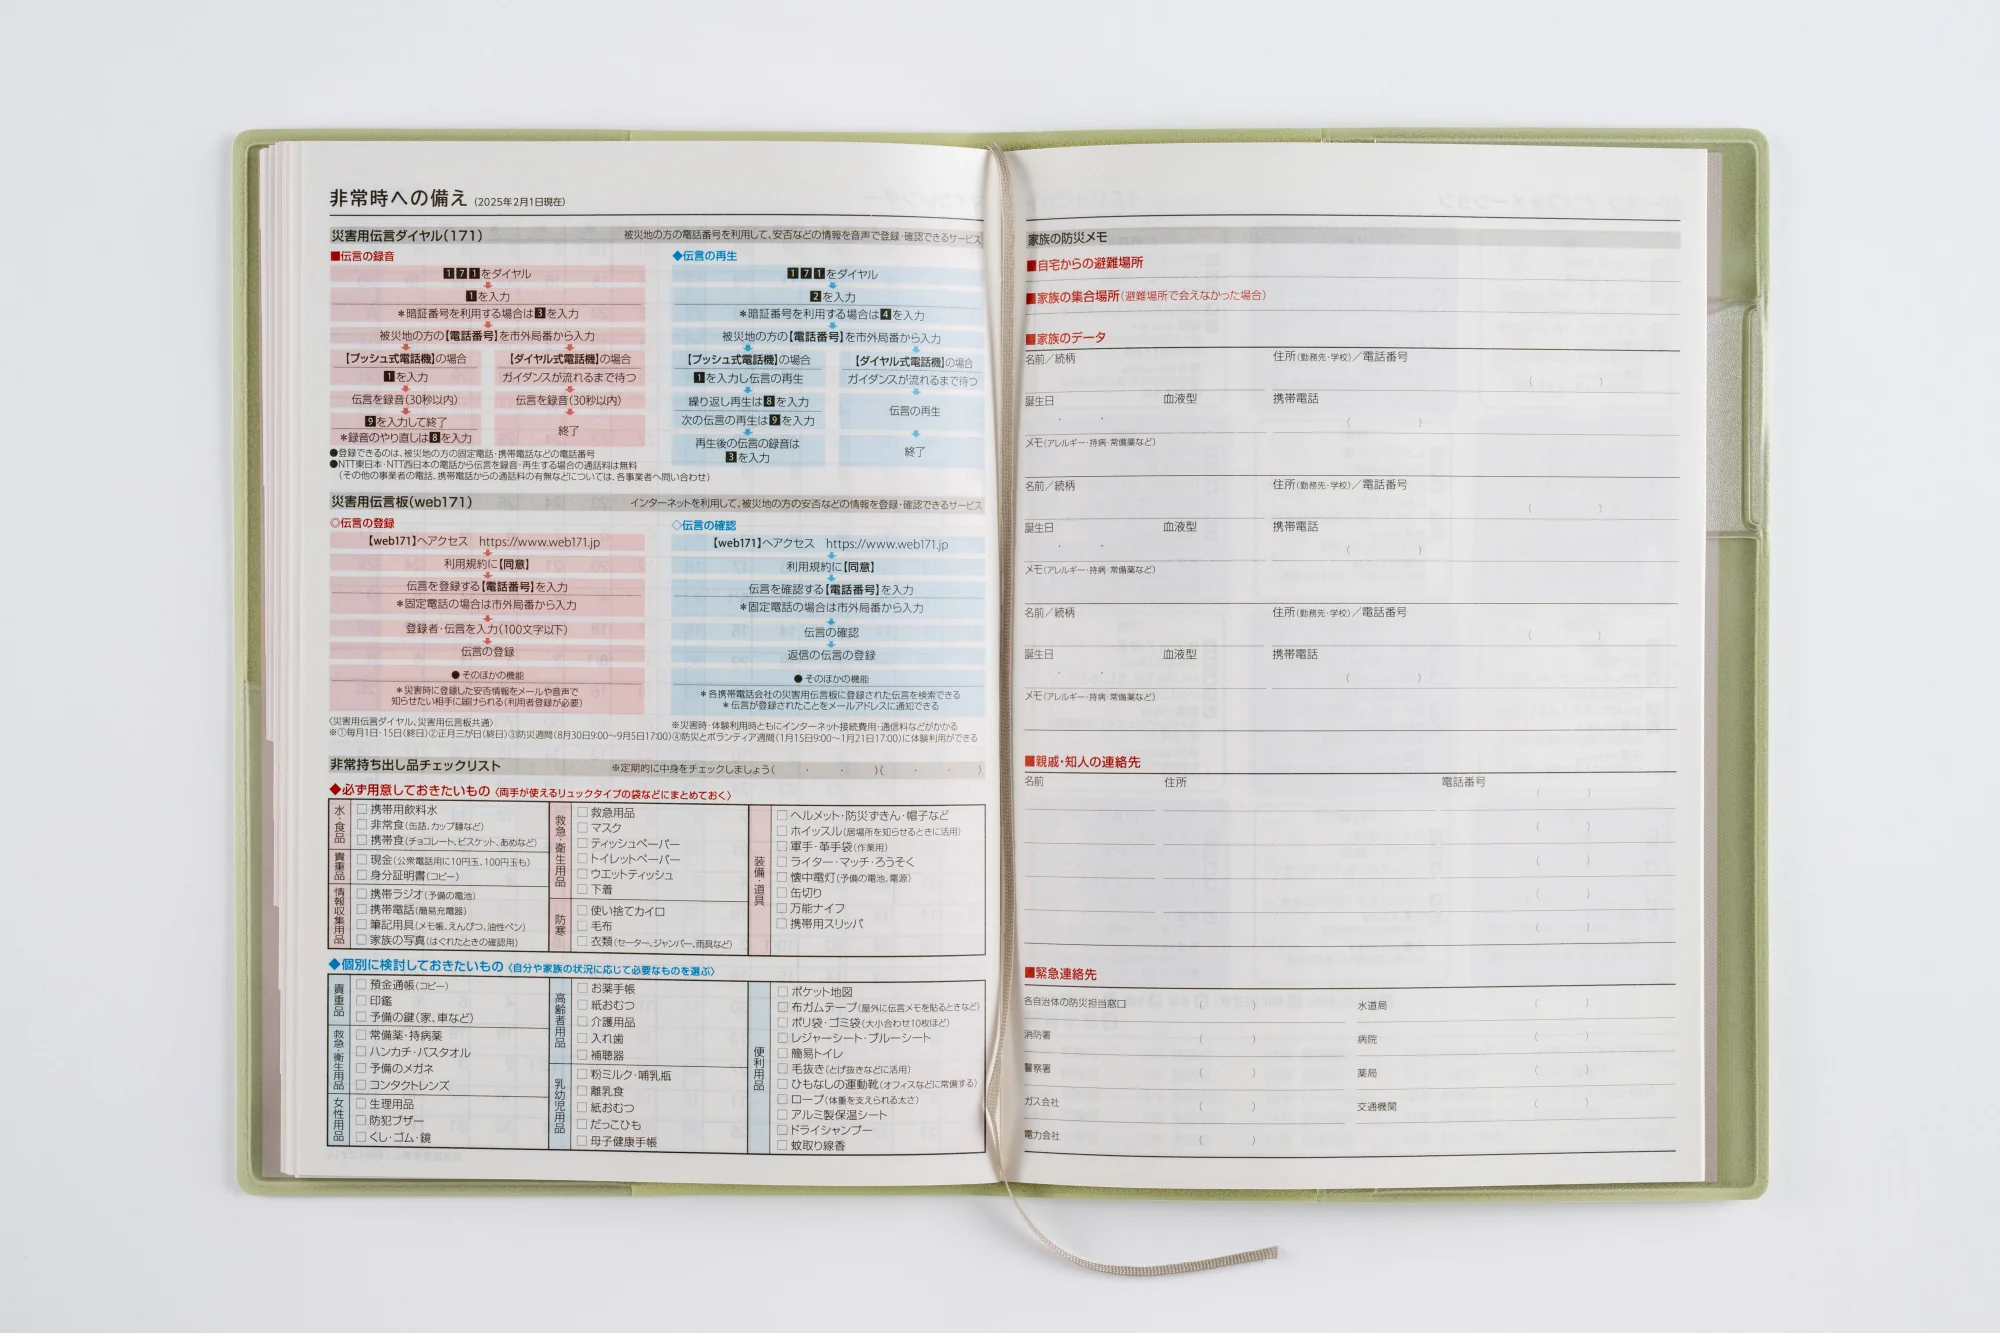 非常時への備え (2025年2月1日現在)
災害用伝言ダイヤル(171) 被災地の方の電話番号を利用して、安否などの情報を音声で登録・確認できるサービス
■伝言の録音
171をダイヤル
1を入力
＊暗証番号を利用する場合は3を入力
被災地の方の【電話番号】を市外局番から入力
【プッシュ式電話機】の場合
1を入力
伝言を録音(30秒以内)
9を入力して終了
＊録音のやり直しは8を入力
【ダイヤル式電話機】の場合
ガイダンスが流れるまで待つ
伝言を録音(30秒以内)
終了
◆伝言の再生
171をダイヤル
2を入力
＊暗証番号を利用する場合は4を入力
被災地の方の【電話番号】を市外局番から入力
【プッシュ式電話機】の場合
1を入力し伝言の再生
繰り返し再生は8を入力
次の伝言の再生は9を入力
再生後の伝言の録音は
3を入力
【ダイヤル式電話機】の場合
ガイダンスが流れるまで待つ
伝言の再生
終了
●登録できるのは、被災地の方の固定電話・携帯電話などの電話番号
●NTT東日本・NTT西日本の電話から伝言を録音・再生する場合の通話料は無料
(その他の事業者の電話、携帯電話からの通話料の有無などについては、各事業者へ問い合わせ)
災害用伝言板(web171) インターネットを利用して、被災地の方の安否などの情報を登録・確認できるサービス
◎伝言の登録
【web171】へアクセス https://www.web171.jp
利用規約に【同意】
伝言を登録する【電話番号】を入力
＊固定電話の場合は市外局番から入力
登録者・伝言を入力(100文字以下)
伝言の登録
●そのほかの機能
＊災害時に登録した安否情報をメールや音声で
知らせたい相手に届けられる(利用者登録が必要)
◇伝言の確認
【web171】へアクセス https://www.web171.jp
利用規約に【同意】
伝言を確認する【電話番号】を入力
＊固定電話の場合は市外局番から入力
伝言の確認
返信の伝言の登録
●そのほかの機能
＊各携帯電話会社の災害用伝言板に登録された伝言を検索できる
＊伝言が登録されたことをメールアドレスに通知できる
〈災害用伝言ダイヤル、災害用伝言板共通〉 ※災害時・体験利用時ともにインターネット接続費用・通信料などがかかる
※①毎月1日・15日(終日)②正月三が日(終日)③防災週間(8月30日9:00〜9月5日17:00)④防災とボランティア週間(1月15日9:00〜1月21日17:00)に体験利用ができる
非常持ち出し品チェックリスト ※定期的に中身をチェックしましょう( ・ ・ )( ・ ・ )
◆必ず用意しておきたいもの〈両手が使えるリュックタイプの袋などにまとめておく〉
水・食品
□携帯用飲料水
□非常食(缶詰、カップ麺など)
□携帯食(チョコレート、ビスケット、あめなど)
貴重品
□現金(公衆電話用に10円玉、100円玉も)
□身分証明書(コピー)
情報収集用品
□携帯ラジオ(予備の電池)
□携帯電話(簡易充電器)
□筆記用具(メモ帳、えんぴつ、油性ペン)
□家族の写真(はぐれたときの確認用)
救急・衛生用品
□救急用品
□マスク
□ティッシュペーパー
□トイレットペーパー
□ウエットティッシュ
□下着
防寒
□使い捨てカイロ
□毛布
□衣類(セーター、ジャンパー、雨具など)
装備・道具
□ヘルメット・防災ずきん・帽子など
□ホイッスル(居場所を知らせるときに活用)
□軍手・革手袋(作業用)
□ライター・マッチ・ろうそく
□懐中電灯(予備の電池、電源)
□缶切り
□万能ナイフ
□携帯用スリッパ
◆個別に検討しておきたいもの〈自分や家族の状況に応じて必要なものを選ぶ〉
貴重品
□預金通帳(コピー)
□印鑑
□予備の鍵(家、車など)
救急・衛生用品
□常備薬・持病薬
□ハンカチ・バスタオル
□予備のメガネ
□コンタクトレンズ
女性用品
□生理用品
□防犯ブザー
□くし・ゴム・鏡
高齢者用品
□お薬手帳
□紙おむつ
□介護用品
□入れ歯
□補聴器
乳幼児用品
□粉ミルク・哺乳瓶
□離乳食
□紙おむつ
□だっこひも
□母子健康手帳
便利用品
□ポケット地図
□布ガムテープ(屋外に伝言メモを貼るときなど)
□ポリ袋・ゴミ袋(大小合わせ10枚ほど)
□レジャーシート・ブルーシート
□簡易トイレ
□毛抜き(とげ抜きなどに活用)
□ひもなしの運動靴(オフィスなどに常備する)
□ロープ(体重を支えられる太さ)
□アルミ製保温シート
□ドライシャンプー
□蚊取り線香
家族の防災メモ
■自宅からの避難場所
■家族の集合場所(避難場所で会えなかった場合)
■家族のデータ
名前／続柄 住所(勤務先・学校)／電話番号
( )
誕生日 血液型 携帯電話
・ ・ ( )
メモ(アレルギー・持病・常備薬など)
名前／続柄 住所(勤務先・学校)／電話番号
( )
誕生日 血液型 携帯電話
・ ・ ( )
メモ(アレルギー・持病・常備薬など)
名前／続柄 住所(勤務先・学校)／電話番号
( )
誕生日 血液型 携帯電話
・ ・ ( )
メモ(アレルギー・持病・常備薬など)
■親戚・知人の連絡先
名前 住所 電話番号
( )
( )
( )
( )
( )
■緊急連絡先
各自治体の防災担当窓口 ( ) 水道局 ( )
消防署 ( ) 病院 ( )
警察署 ( ) 薬局 ( )
ガス会社 ( ) 交通機関 ( )
電力会社 ( )